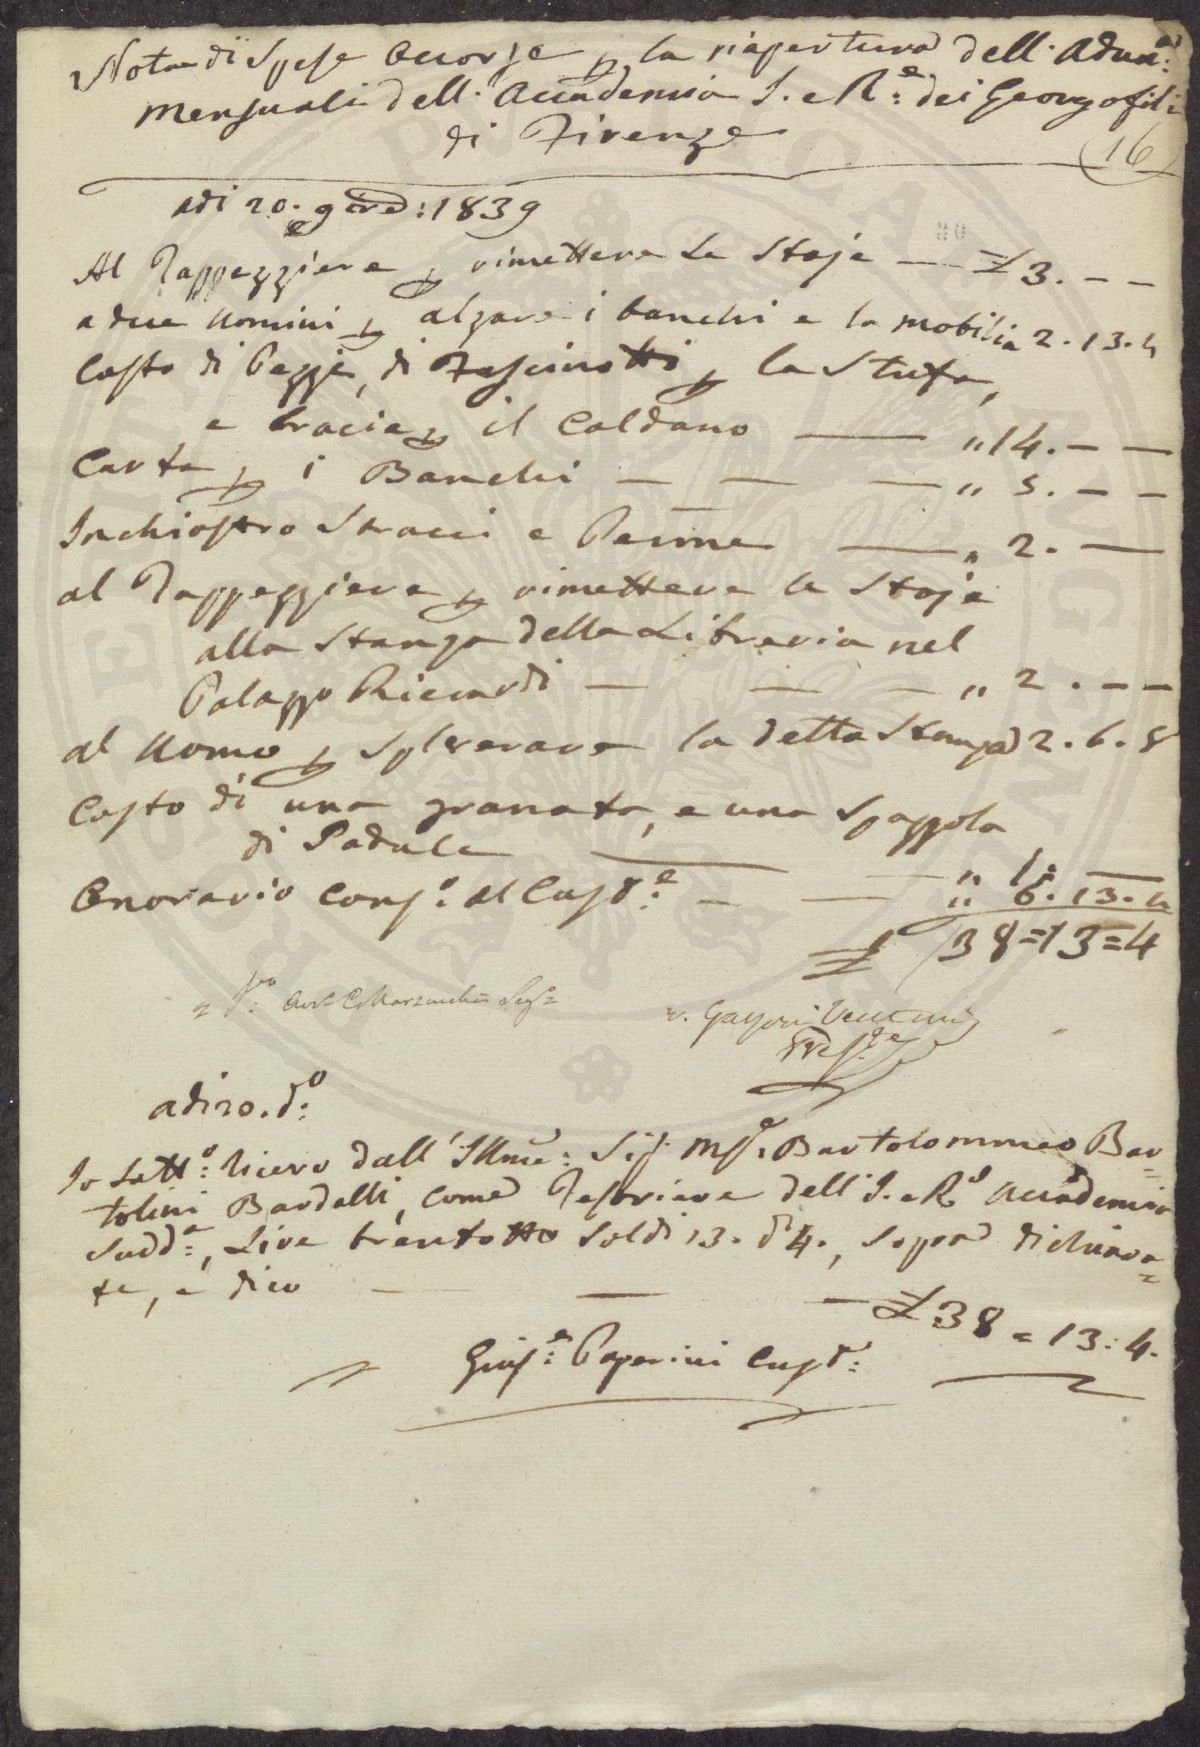 Nota di Spese Occorse p. la riapertura dell. Adun:e
Mensuali dell. Accademia I. e R.e dei Georgofili
di Firenze
16
adi 20. 9bre: 1839
Al Tappezziere p. rimettere Le Stoje — £ 3. - -
a due Uomini p. alzare i banchi e la mobilia 2. 13. 4
Costo di Pezzi, di Fascinotti p. la Stufa,
e bracie p. il Caldano — " 14. - -
Carta p. i Banchi — — — " 5. - -
Inchiostro Stracci e Penne — " 2. —
al Tappezziere p. rimettere le Stoje
alla Stanza della Libreria nel
Palazzo Riccardi — — — " 2. - -
al Uomo p. Spolverare la detta Stanza 2. 6. 8
Costo di una granata, e una Spazzola
di Padule — — " 1. —
Onorario Cons.o al Cust.e — — " 6. 13. 4
£ 38=13=4
v. Gasperi
Pres.te
adi 20. d.o
Io Sott.o Ricevo dall' Illmo: Sig. Mse. Bartolommeo Bar=
tolini Bardelli, Come Tesoriere dell' I. e R.e Accademia
Sudd.a, Lire trentotto Soldi 13. d 4., Sopra dichiara=
te, e dico — — — £ 38=13:4.
Gius.e Paperini Cust.